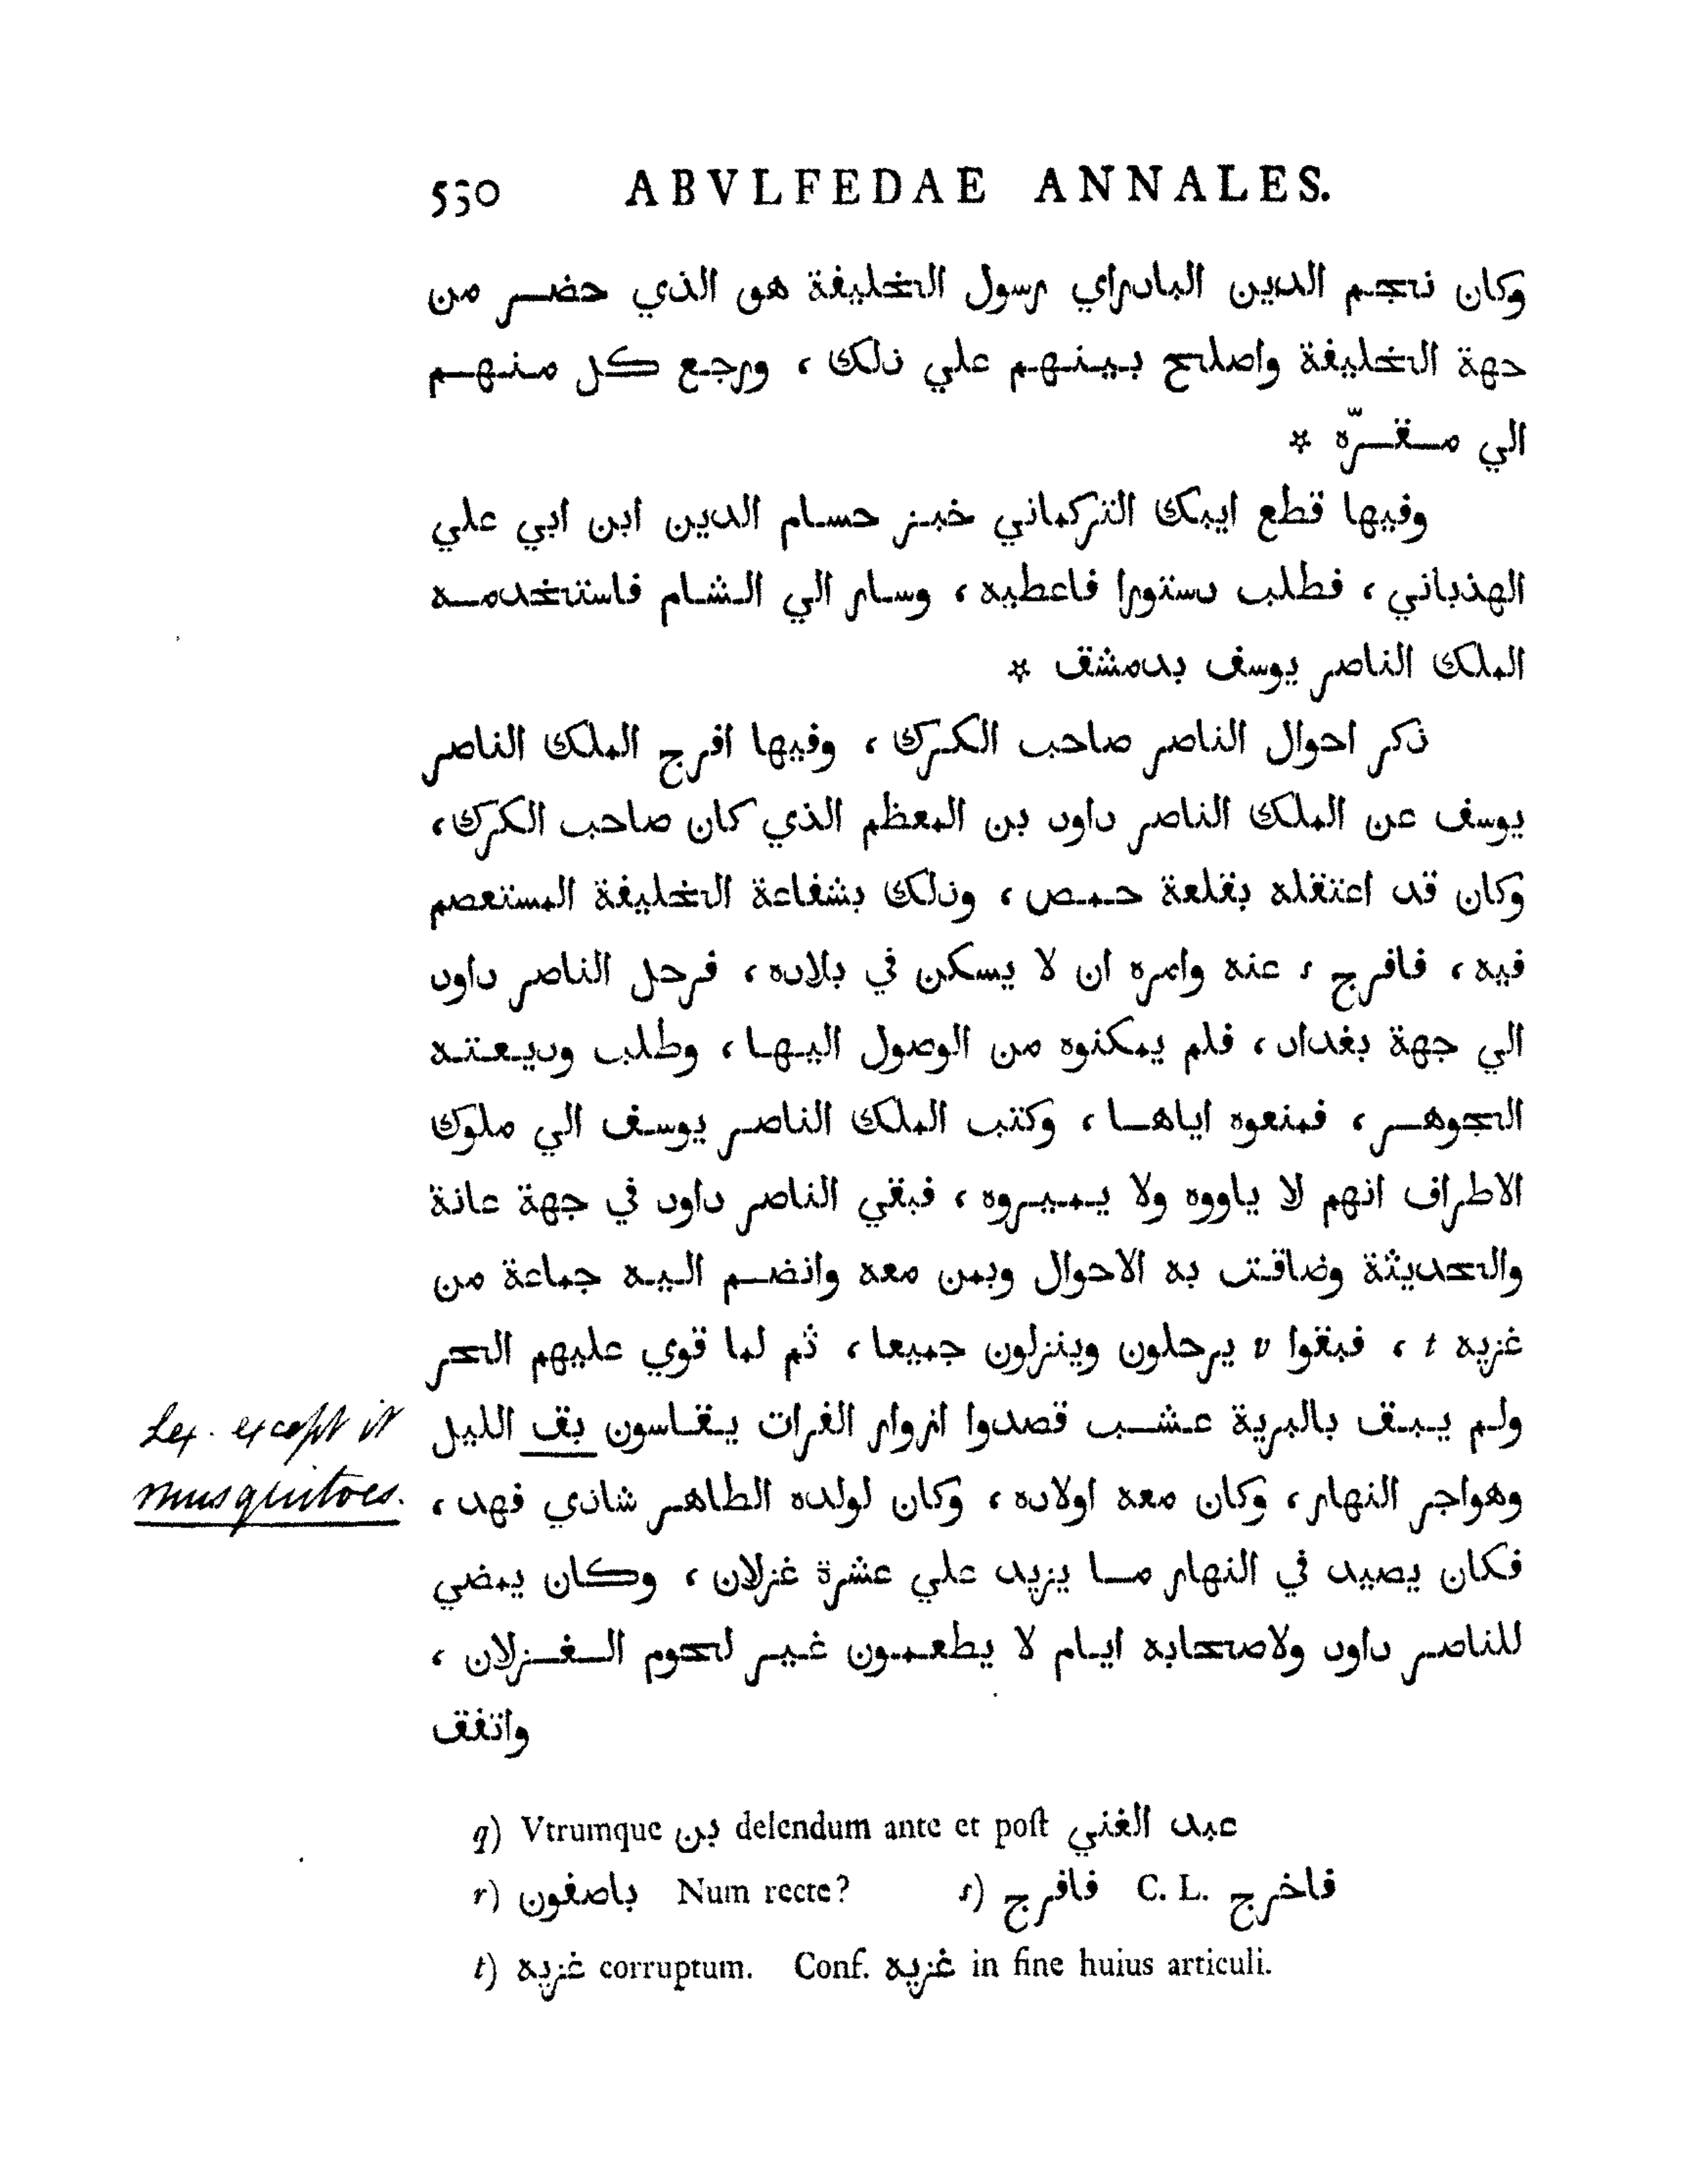 530 ABVLFEDAE ANNALES.
وكان نجم الدين البادراي رسول الخليفة هو الذي حضر من
جهة الخليفة واصلح بينهم علي ذلك ، ورجع كل منهم
الي مقرّه *
وفيها قطع ايبك التركماني خبز حسام الدين ابن ابي علي
الهذباني ، فطلب دستورا فاعطيه ، وسار الي الشام فاستخدمه
الملك الناصر يوسف بدمشق *
ذكر احوال الناصر صاحب الكرك ، وفيها افرج الملك الناصر
يوسف عن الملك الناصر داود بن المعظم الذي كان صاحب الكرك ،
وكان قد اعتقله بقلعة حمص ، وذلك بشفاعة الخليفة المستعصم
فيه ، فافرج s عنه وامره ان لا يسكن في بلاده ، فرحل الناصر داود
الي جهة بغداد ، فلم يمكنوه من الوصول اليها ، وطلب وديعته
الجوهر ، فمنعوه اياها ، وكتب الملك الناصر يوسف الي ملوك
الاطراف انهم لا ياووه ولا يميروه ، فبقي الناصر داود في جهة عانة
والحديثة وضاقت به الاحوال وبمن معه وانضم اليه جماعة من
غزيه t ، فبقوا v يرحلون وينزلون جميعا ، ثم لما قوي عليهم الحر
ولم يبق بالبرية عشب قصدوا ازوار الفرات يقاسون بق الليل
Lex. except it
musquitoes.
وهواجر النهار ، وكان معه اولاده ، وكان لولده الطاهر شاذي فهد ،
فكان يصيد في النهار ما يزيد علي عشرة غزلان ، وكان يمضي
للناصر داود ولاصحابه ايام لا يطعمون غير لحوم الغزلان ،
واتفق
q) Vtrumque بن delendum ante et post عبد الغني
r) باصفون Num recte? s) فافرج C. L. فاخرج
t) غزيه corruptum. Conf. غزيه in fine huius articuli.